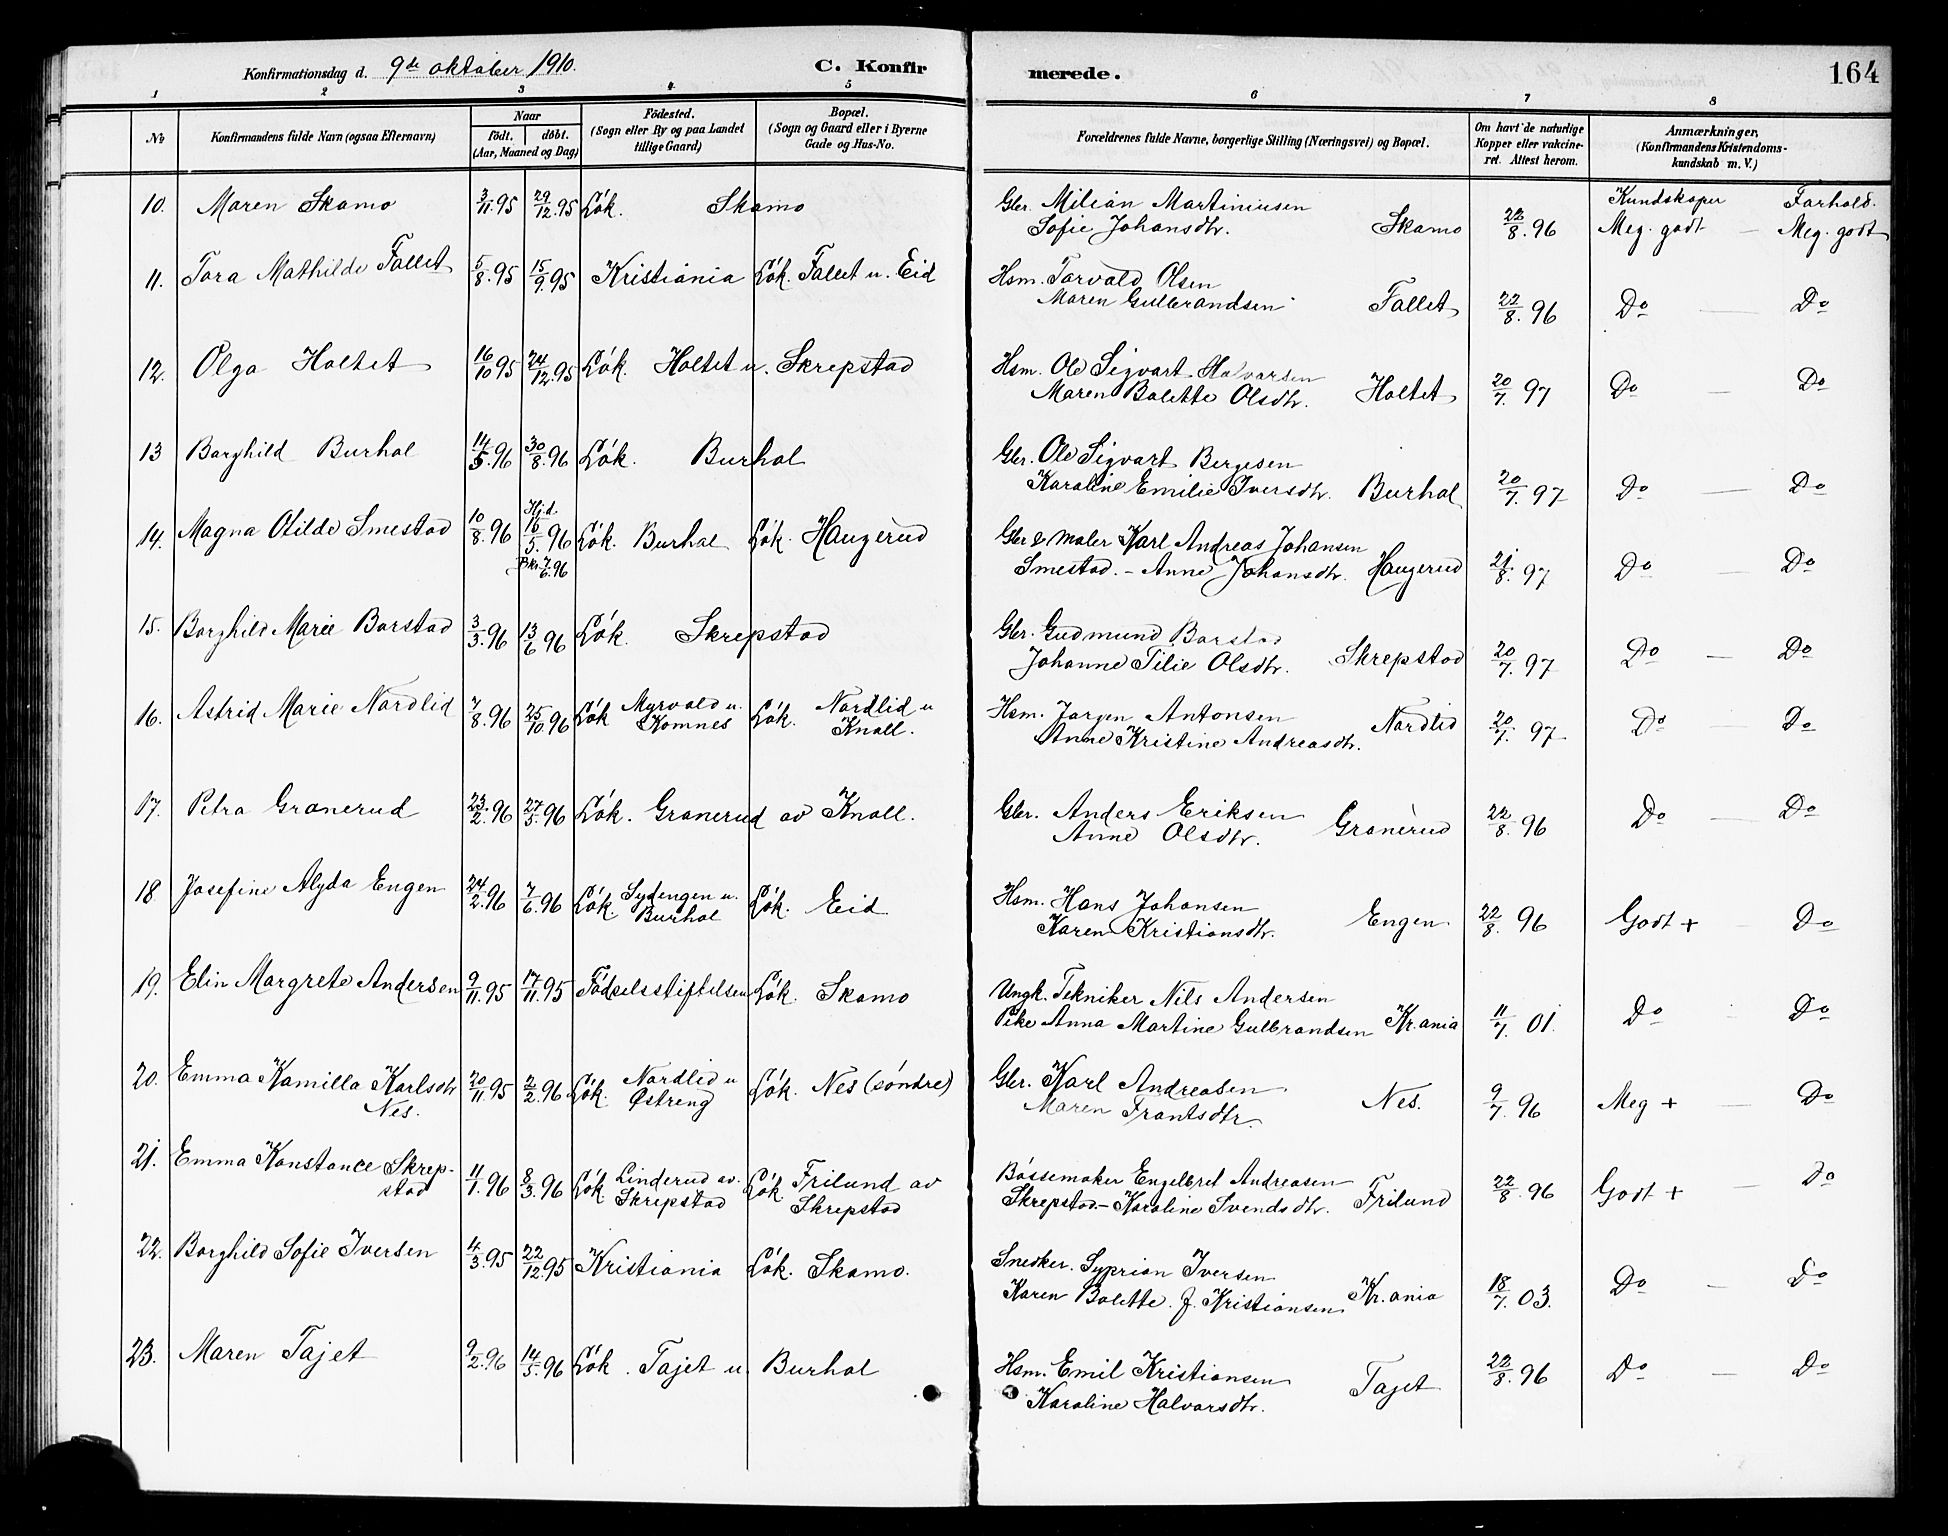 Konfirmationsdag d. 9de oktober 1910.
C. Konfir
merede.
164
1 2 3 4 5 6 7 8
No
Konfirmandens fulde Navn (ogsaa Efternavn)
Naar
født. døbt.
(Aar, Maaned og Dag)
Fødested.
(Sogn eller By og paa Landet
tillige Gaard)
Bopæl.
(Sogn og Gaard eller i Byerne
Gade og Hus-No.
Forældrenes fulde Navne, borgerlige Stilling (Næringsvei) og Bopæl.
Om havt de naturlige
Kopper eller vakcine-
ret. Attest herom.
Anmærkninger,
(Konfirmandens Kristendoms-
kundskab m. V.)
Kundskaper Forhold.
10. Maren Skamo 3/11.95 29/12.95 Løk. Skamo Gbr. Milian Martiniusen
Sofie Johansdtr. Skamo 22/8.96 Meg. godt — Meg. godt
11. Tora Mathilde Fallet 5/8.95 15/9.95 Kristiania Løk. Fallet u. Eid Hsm. Torvald Olsen
Maren Gulbrandsen Fallet 22/8.96 Do — Do
12. Olga Holtet 16/10 95 24/12.95 Løk. Holtet u. Skrepstad Hsm. Ole Sigvart Halvorsen
Maren Bolette Olsdtr. Holtet 20/7. 97 Do — Do
13 Borghild Burhol 14/5.96 30/8.96 Løk. Burhol Gbr. Ole Sigvart Bergesen
Karoline Emilie Iversdtr. Burhol 20/7.97 Do — Do
14. Magna Otilde Smestad 10/8.96 Hj.d. 16/5.96 Løk. Burhol Løk. Haugerud Gbr & Maler Karl Andreas Johansen
Bkr. 7/6.96 Smestad. – Anne Johansdtr. Haugerud 21/8. 97 Do — Do
15. Borghild Marie Borstad 3/3.96 13/6 96 Løk. Skrepstad Gbr. Gudmund Borstad
Johanne Tilie Olsdtr. Skrepstad 20/7. 97 Do — Do
16. Astrid Marie Nordlid 7/8.96 25/10.96 Løk Myrvold u. Komnes Løk. Nordlid u Knoll. Hsm. Jørgen Antonsen
Anne Kristine Andreasdtr. Nordlid 20/7. 97 Do — Do
17. Petra Granerud 23/2.96 27/5.96 Løk. Granerud av Knoll. Gbr. Anders Eriksen
Anne Olsdtr. Granerud 22/8. 96 Do — Do
18 Josefine Alyda Engen 24/2.96 7/6.96 Løk. Sydengen u. Burhol Løk. Eid Hsm. Hans Johansen
Karen Kristiansdtr. Engen 22/8. 96 Godt + — Do
19. Elin Margrete Andersen 9/11.95 17/11.95 Fødselsstiftelsen Løk. Skamo Ungk. Tekniker Nils Andersen
Pike Anna Martine Gulbrandsen Kr.ania 11/7. 01. Do Do
20. Emma Kamilla Karlsdtr 20/11.95 2/2.96 Løk. Nordlid u Østreng Løk. Nes (søndre) Gbr. Karl Andreasen
Nes. Maren Frantsdtr. Nes. 9/7. 96 Meg + — Do
21. Emma Konstance Skrep- 11/1.96 8/3.96 Løk Linderud av. Skrepstad Løk. Frilund av Skrepstad Bøssemaker Engelbret Andreasen
stad Skrepstad. – Karoline Svendsdtr. Frilund 22/8.96 Godt + — Do
22. Borghild Sofie Iversen 4/3.95 22/12.95 Kristiania Løk. Skamo. Snedker. Syprian Iversen
Karen Bolette. f. Kristiansen Kr.ania 18/7. 03. Do — Do
23. Maren Tajet 9/2.96 14/5.96 Løk. Tajet u. Burhol Hsm. Emil Kristiansen
Karoline Halvorsdtr. Tajet 22/8.96 Do — Do